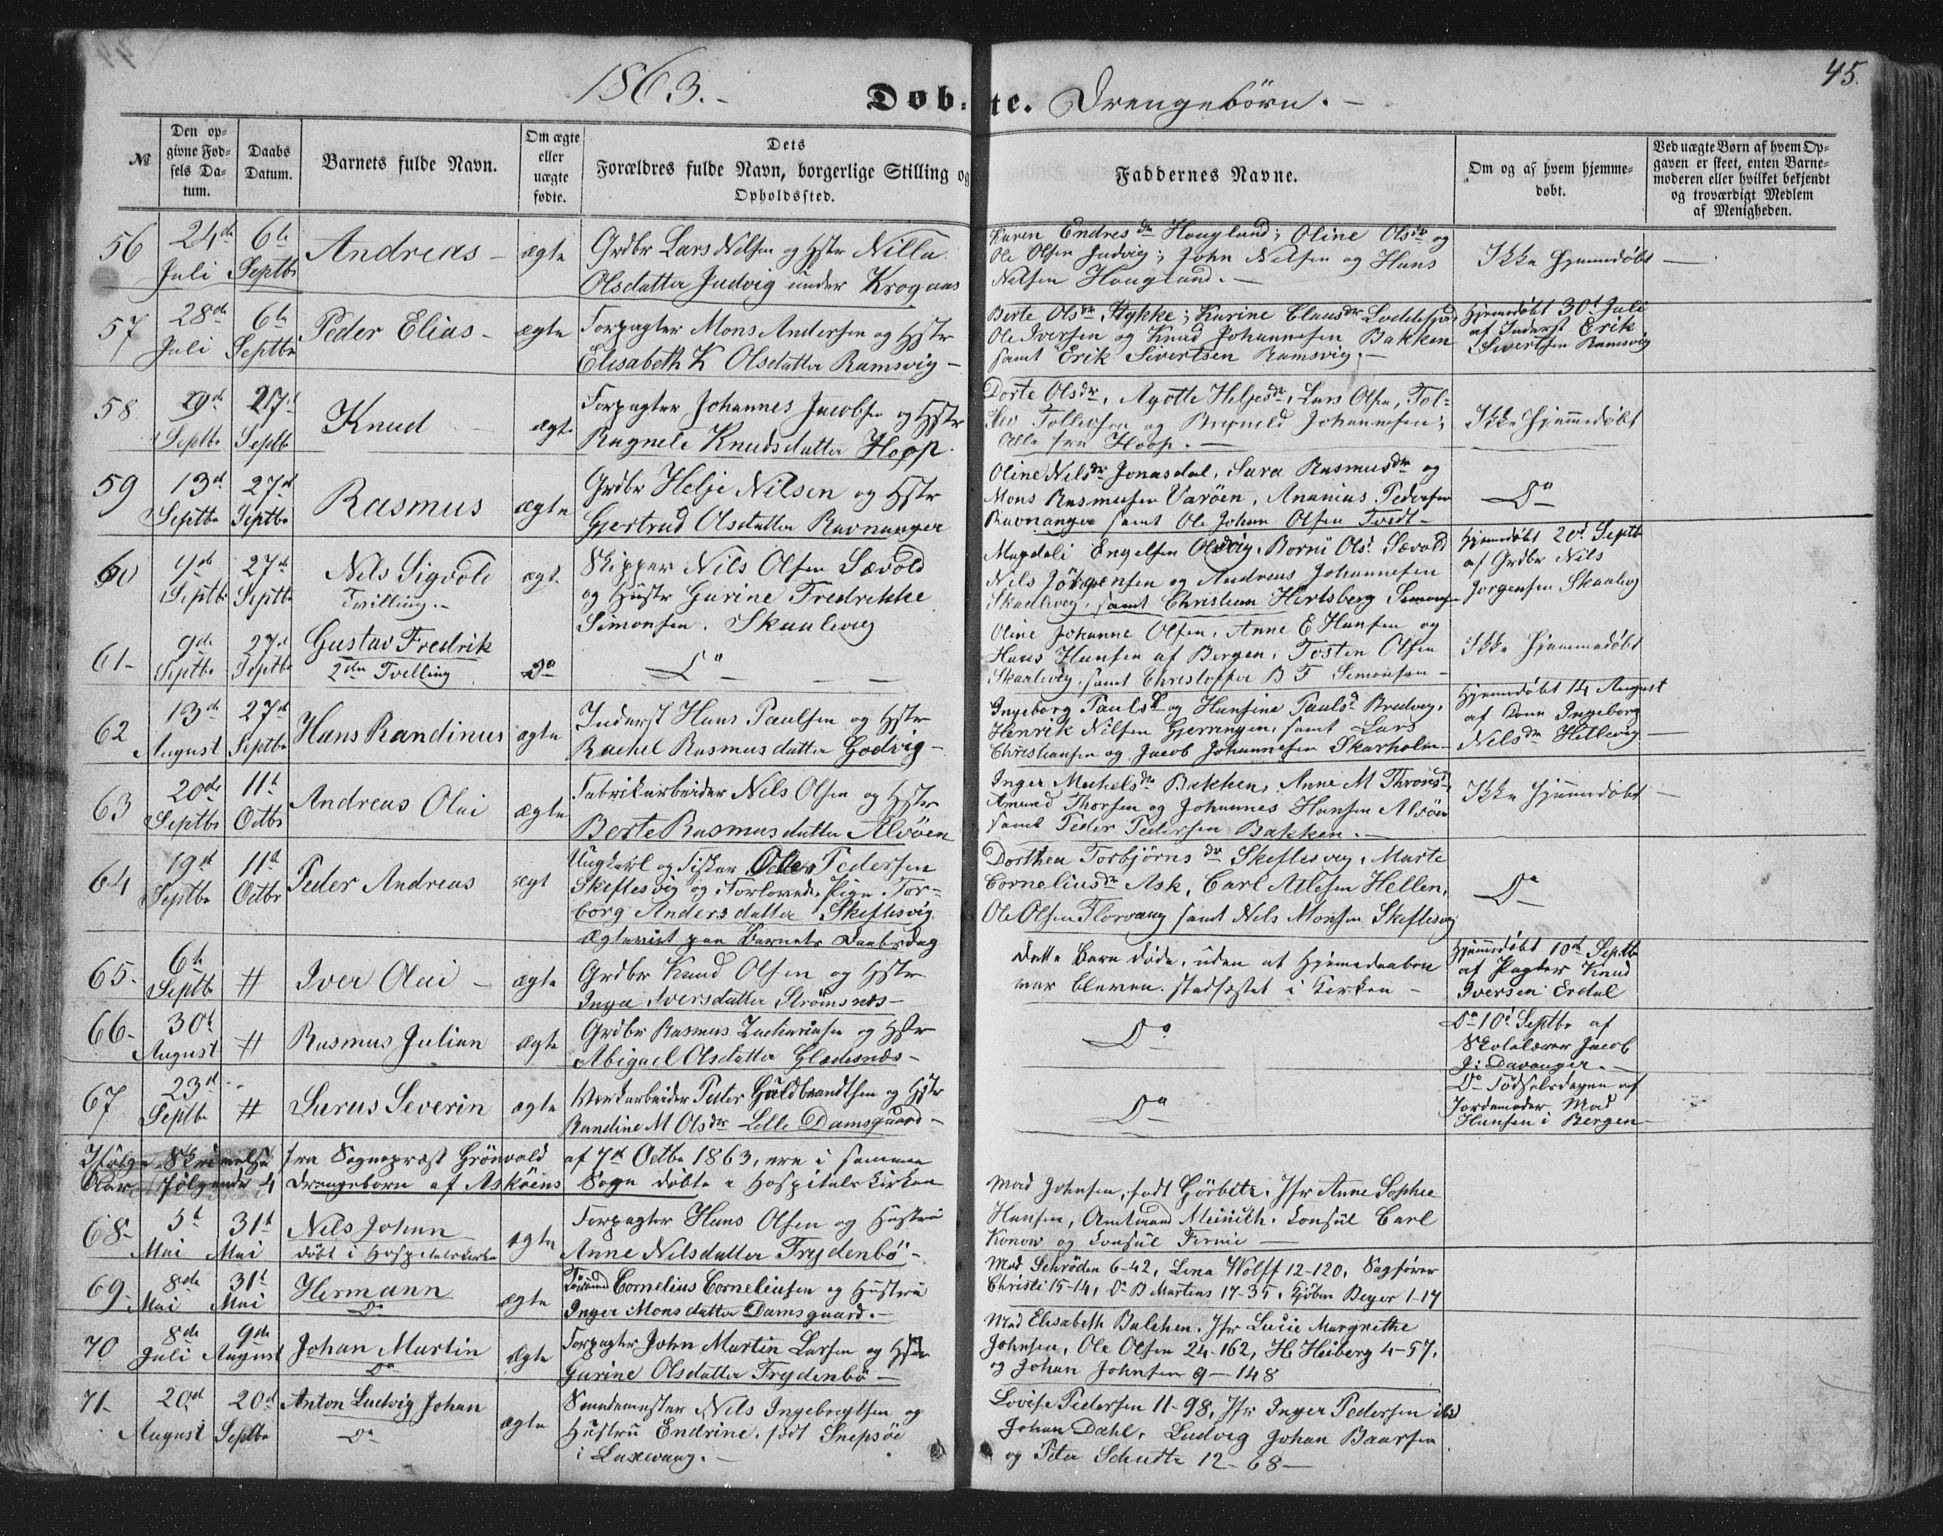 45.
1863. Døb-te. Drengebørn.
№
Den opgivne Fødsels Datum.
Daabs Datum.
Barnets fulde Navn.
Om ægte eller uægte fødte.
Dets
Forældres fulde Navn, borgerlige Stilling og
Opholdssted.
Faddernes Navne.
Om og af hvem hjemmedøbt.
Ved uægte Børn af hvem Opgaven er skeet, enten Barnemoderen eller hvilket bekjendt og troværdigt Medlem af Menigheden.
56 24de Juli 6te Septbr Andreas ægte
Grdbr Lars Nilsen og Hstr Nilla
Olsdatter Judvig under Krogaas
Karen Endresdr Hougland; Oline Olsdr og
Ole Olsen Judvig; John Nilsen og Hans
Nilsen Hougland.
Ikke Hjemmedøbt
57 28de Juli 6te Septbr Peder Elias ægte
Forpagter Mons Andersen og Hstr
Elisabeth K Olsdatter Ramsvig
Berte Olsdr Stykke; Karine Clausdr Loddefjord,
Ole Iversen og Knud Johannesen Bakken
samt Erik Sivertsen Ramsvig.
Hjemmedøbt 30t Juli
af Inderst Erik
Sivertsen Ramsvig
58 Septbr 27d Septbr Knud ægte
Forpagter Johannes Jacobsen og Hstr
Ragnele Knudsdatter Hoop.
Dorte Olsdr, Agotte Heljesdr, Lars Olsen, Tol-
lev Tollevsen og Johannesen;
Alle fra Hoop.
Ikke Hjemmedøbt
59 13d Septbr 27d Septbr Rasmus ægte
Grdbr Helje Nilsen og Hstr
Gjertrud Olsdatter Ravnanger
Oline Nilsdr Jonasdal, Sara Rasmusdr og
Mons Rasmusen Varöen, Ananias Pedersen
Ravnanger samt Ole Johan Olsen Tvedt
Do
60 9de Septbr 27d Septbr Nels Sigvold ægte
Tvilling.
Skipper Nils Olsen Sævold
og Hustr Gurine Fredrikke
Simonsen. Skaalevig
Magdeli Engelsen Olsvig, Olsd. Sævold
Nils Jörgensen og Andreas Johannesen
Skaalevig, samt Christian Hertsberg Simonsen
Hjemmedøbt 20d Septb
af Grdbr Nils
Jørgensen Skaalevig
61 9de Septbr 27d Septbr Gustav Fredrik Do
2den Tvilling
Do
Oline Johanne Olsen, Anne E Hansen og
Hans Hansen af Bergen, Tosten Olsen
Skaalevig, samt Christoffer B F Simonsen
Ikke Hjemmedøbt
62 13de August 27d Septbr Hans Randinus ægte
Inderst Hans Paulsen og Hstr
Rachel Rasmusdatter Godvig
Ingeborg Paulsd og Hansine Paulsd Bredvig,
Henrik Nilsen Gjerringen, samt Lars
Christiansen og Jacob Johannesen Skarholm
Hjemmedøbt 14 August
af Kone Ingeborg
Nilsdr Hetlevig
63 20de Septbr 11t Octbr Andreas Olai ægte
Fabrikarbeider Nils Olsen og Hstr
Berte Rasmusdatter Alvöen
Inger Michelsdr Bakken, Anne M Thronsd,
Amund Thorsen og Johannes Hansen Alvöen
samt Peder Pedersen Bakken.
Ikke Hjemmedøbt
64 19d Septbr 11t Octbr Peder Andreas ægte
Ungkarl og Fisker Ole Pedersen
Skeflesvig og Forlovede Pige Tor-
borg Andersdatter Skeflesvig
Ægteviet paa Barnets Daabsdag
Dorthea Torbjørnsdr Skeflesvig, Marte
Corneliusdr Ask, Carl Atlesen Hellen,
Ole Olsen Florvaag samt Nils Monsen Skeflesvig
Do
65. 6te Septbr # Iver Olai ægte
Grdbr Knud Olsen og Hstr
Inga Iversdatter Strömsnes
Dette Barn døde, uden at Hjemmedaaben
var bleven stadfæstet i Kirken
Hjemmedøbt 10d Septbr
af Pagter Knud
Iversen Erdal
66. 30t August # Rasmus Julian ægte
Grdbr Rasmus Zachariasen og Hstr
Abigael Olsdatter Gledesnæs
Do
Do 10d Septbr af
Skolelærer Jacob
J: Davanger.
67 23d Septbr # Surus Severin ægte
Værkarbeider Peter Guldbrandtsen og Hstr
Randine M Olsdr Lille Damsgaard
Do
Do Fødselsdagen af
Jordemoder Mad
Hansen i Bergen
Ifølge Skrivelse fra Sognepræst Grönvold af 7d Octbr 1863, ere i samme
Aar Følgende 4 Drengebørn af Askøens Sogn døbte i Hospitalskirken
68 5t Mai 31t Mai Nils Johan ægte
døbt i Hospitalskirken
Forpagter Hans Olsen og Hustru
Anne Nilsdatter Frydenbö
Mad Johnsen, født Görbitz, Jfr Anne Sophie
Hansen, Amtmand Münich, Consul Carl
Konow og Consul
69 8de Mai 31t Mai Hermann ægte
Do
Cornelius Corneliusen og Hustru
Inger Monsdatter Damsgaard.
Mad Schrøder 6-42, Lena Wolff 12-120, Sagfører
Christi 15-14, Dr B Martens 17-35, Kjøbm Beyer 1-17
70 8de Juli 9de August Johan Martin ægte
Do
Forpagter John Martin Larsen og Hstr
Gurine Olsdatter Frydenbö
Mad Elisabeth Balchen, Jfr Lucie Margrethe
Johnsen, Ole Olsen 24-162, H. Heiberg 4-57,
og Johan Johnsen 9-148
71 20d August 20d Septbr Anton Ludvig Johan ægte
Do
Nils Ingebregtsen og
Hustru Endrine, født Snepsöe
i Laxevaag.
Lovise Pedersen 11-98, Jfr Inger Pedersen ibd
Johan Dahl, Ludvig Johan Baarsen
og Peter Schutte 12-68